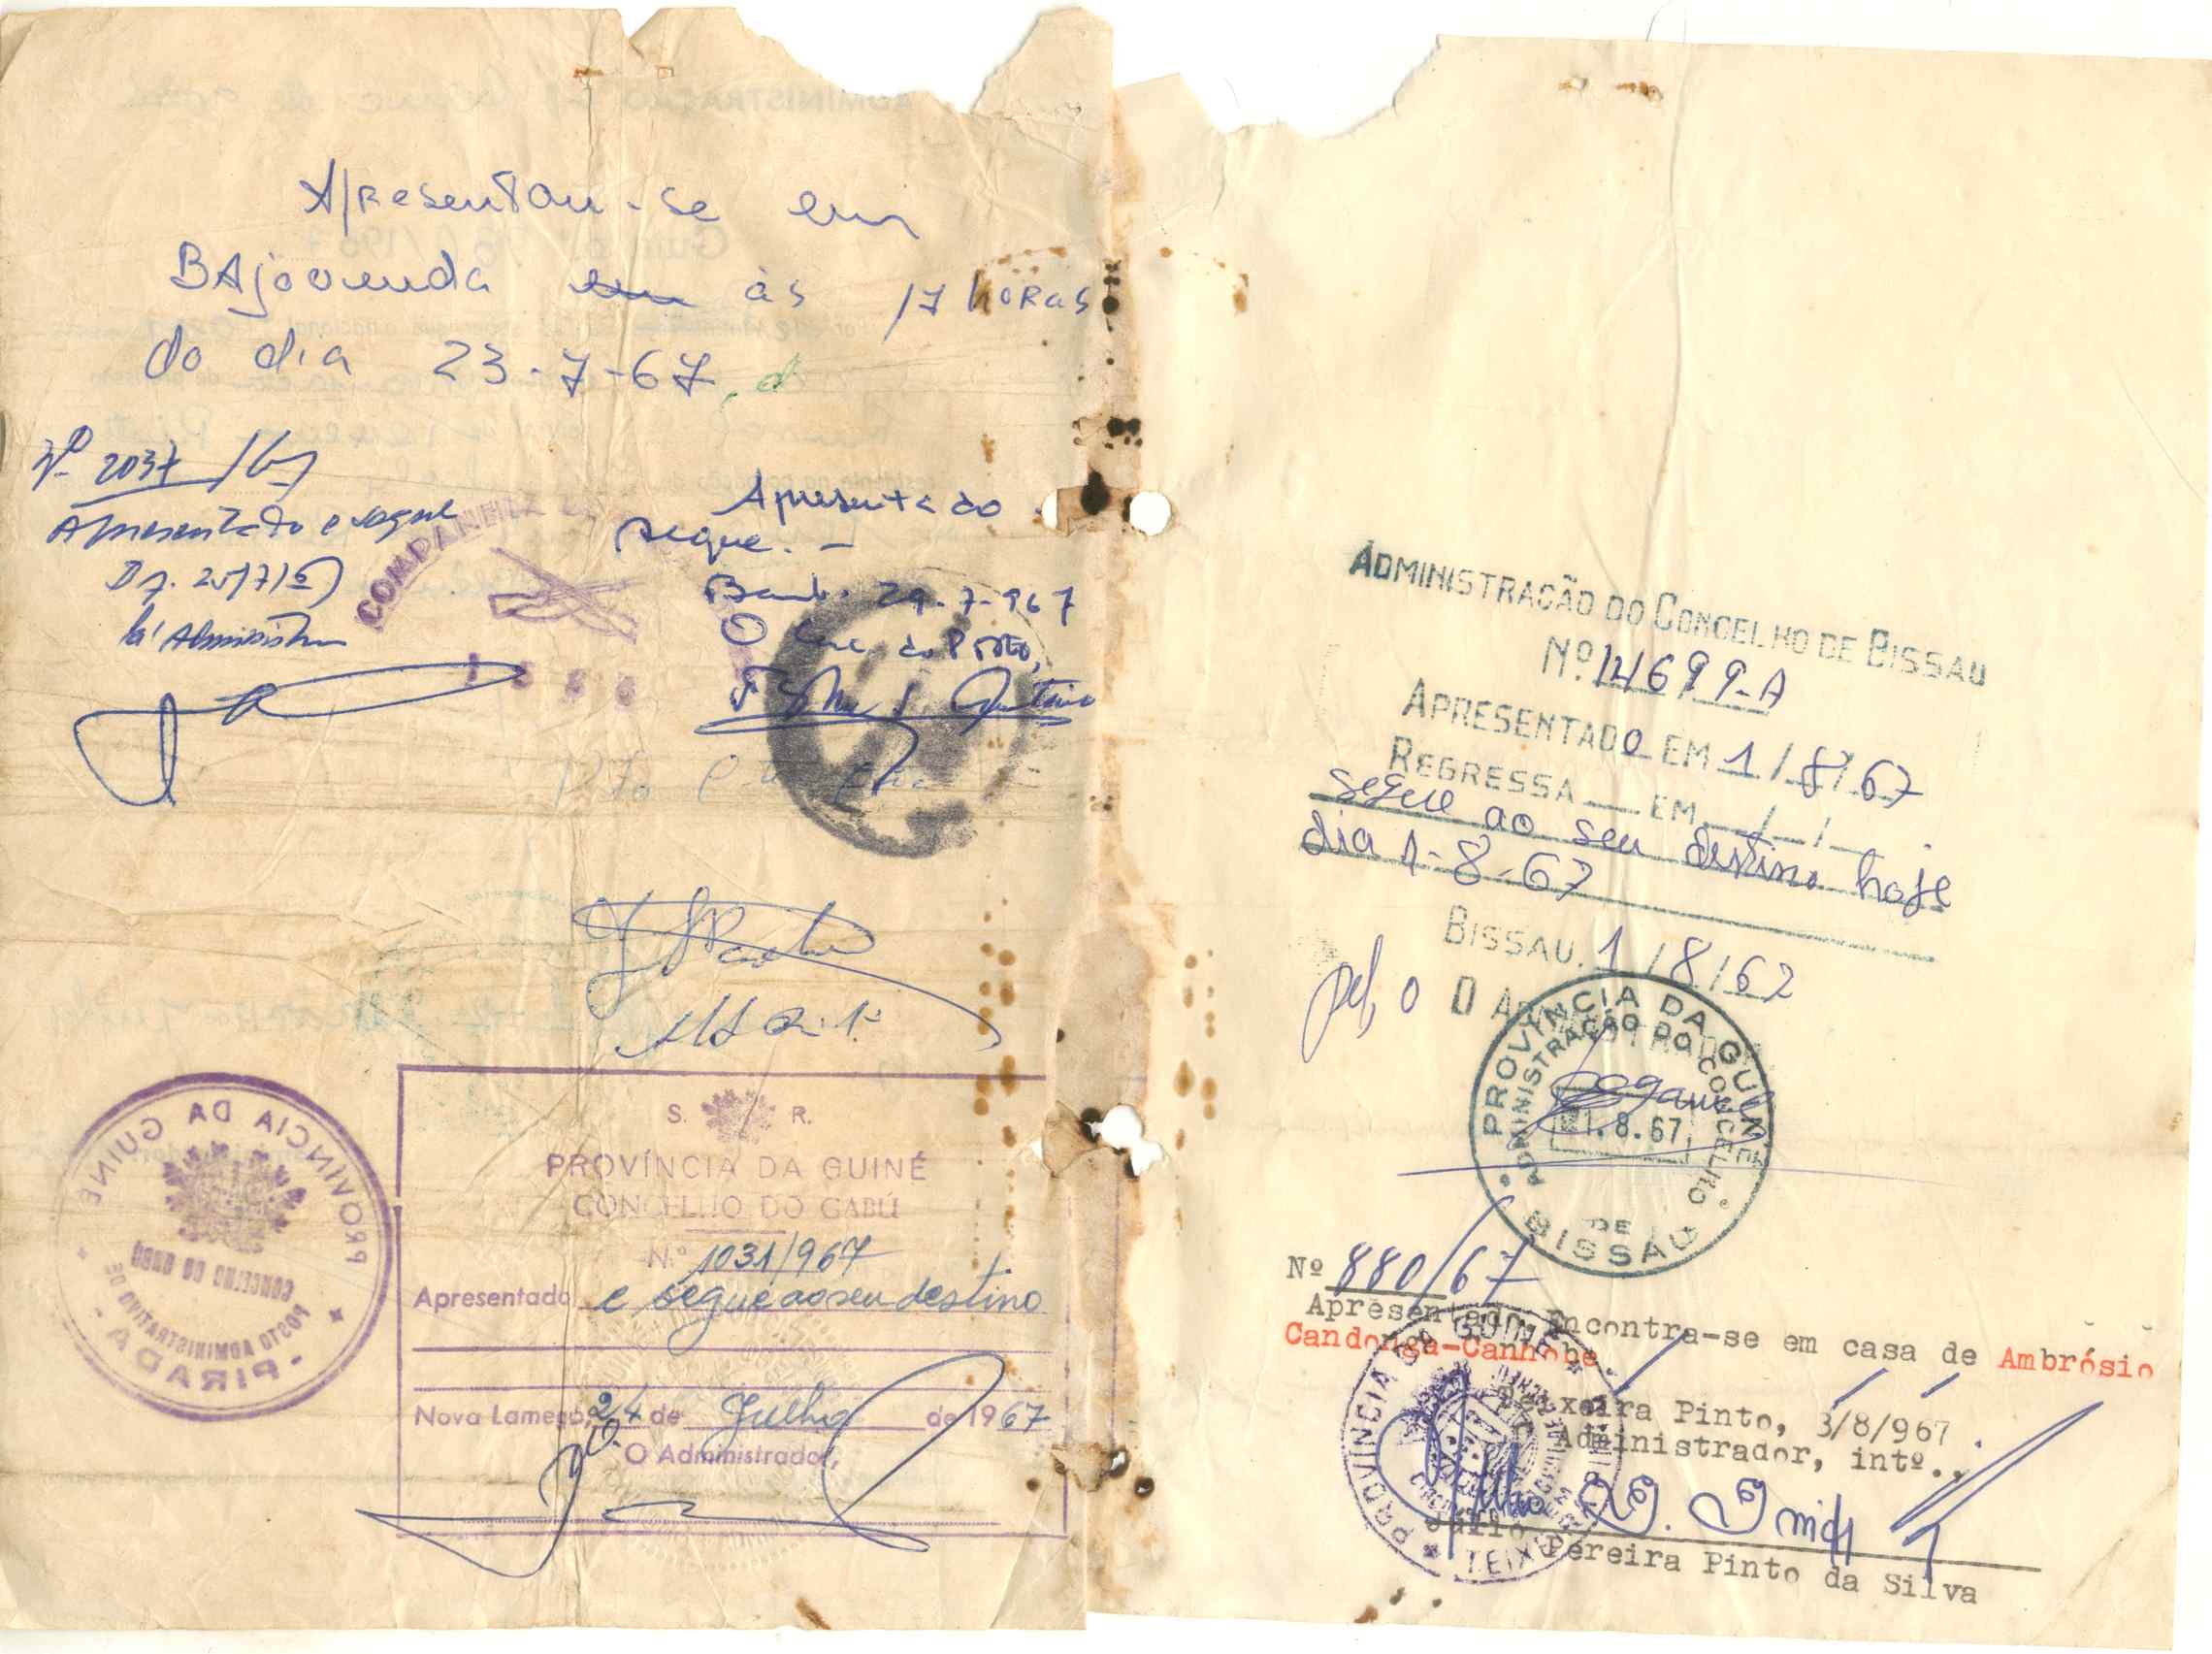 Apresentou-se em
BAjocunda em às 17 hORas
do dia 23-7-67
Nº 2037/67
Apresentado e segue
25/7/67
O Administrador
COMPANHIA
1 5 8 6
Apresentado
segue. –
Bamb. 29-7-967
O do Posto,
S. R.
PROVÍNCIA DA GUINÉ
CONCELHO DO GABÚ
N.º 1031/967
Apresentado e segue ao seu destino
Nova Lamego, 24 de Julho de 1967
O Administrador,
PROVÍNCIA DA GUINÉ
CONCELHO DO GABÚ
POSTO ADMINISTRATIVO DE
- PIRADA -
ADMINISTRAÇÃO DO CONCELHO DE BISSAU
Nº 14699-A
APRESENTADO EM 1/8/67
REGRESSA EM / /
segue ao seu destino hoje
dia 1-8-67
BISSAU, 1/8/67
pel, o O ADMINISTRADOR
PROVÍNCIA DA GUINÉ
ADMINISTRAÇÃO DO CONCELHO
-1.8.67
DE
BISSAU
Nº 880/67
Apresentado. Encontra-se em casa de Ambrósio
Candonga-Canhobe
Teixeira Pinto, 3/8/967
Administrador, intº.,
PROVÍNCIA DA GUINÉ
TEIX
Júlio Pereira Pinto da Silva